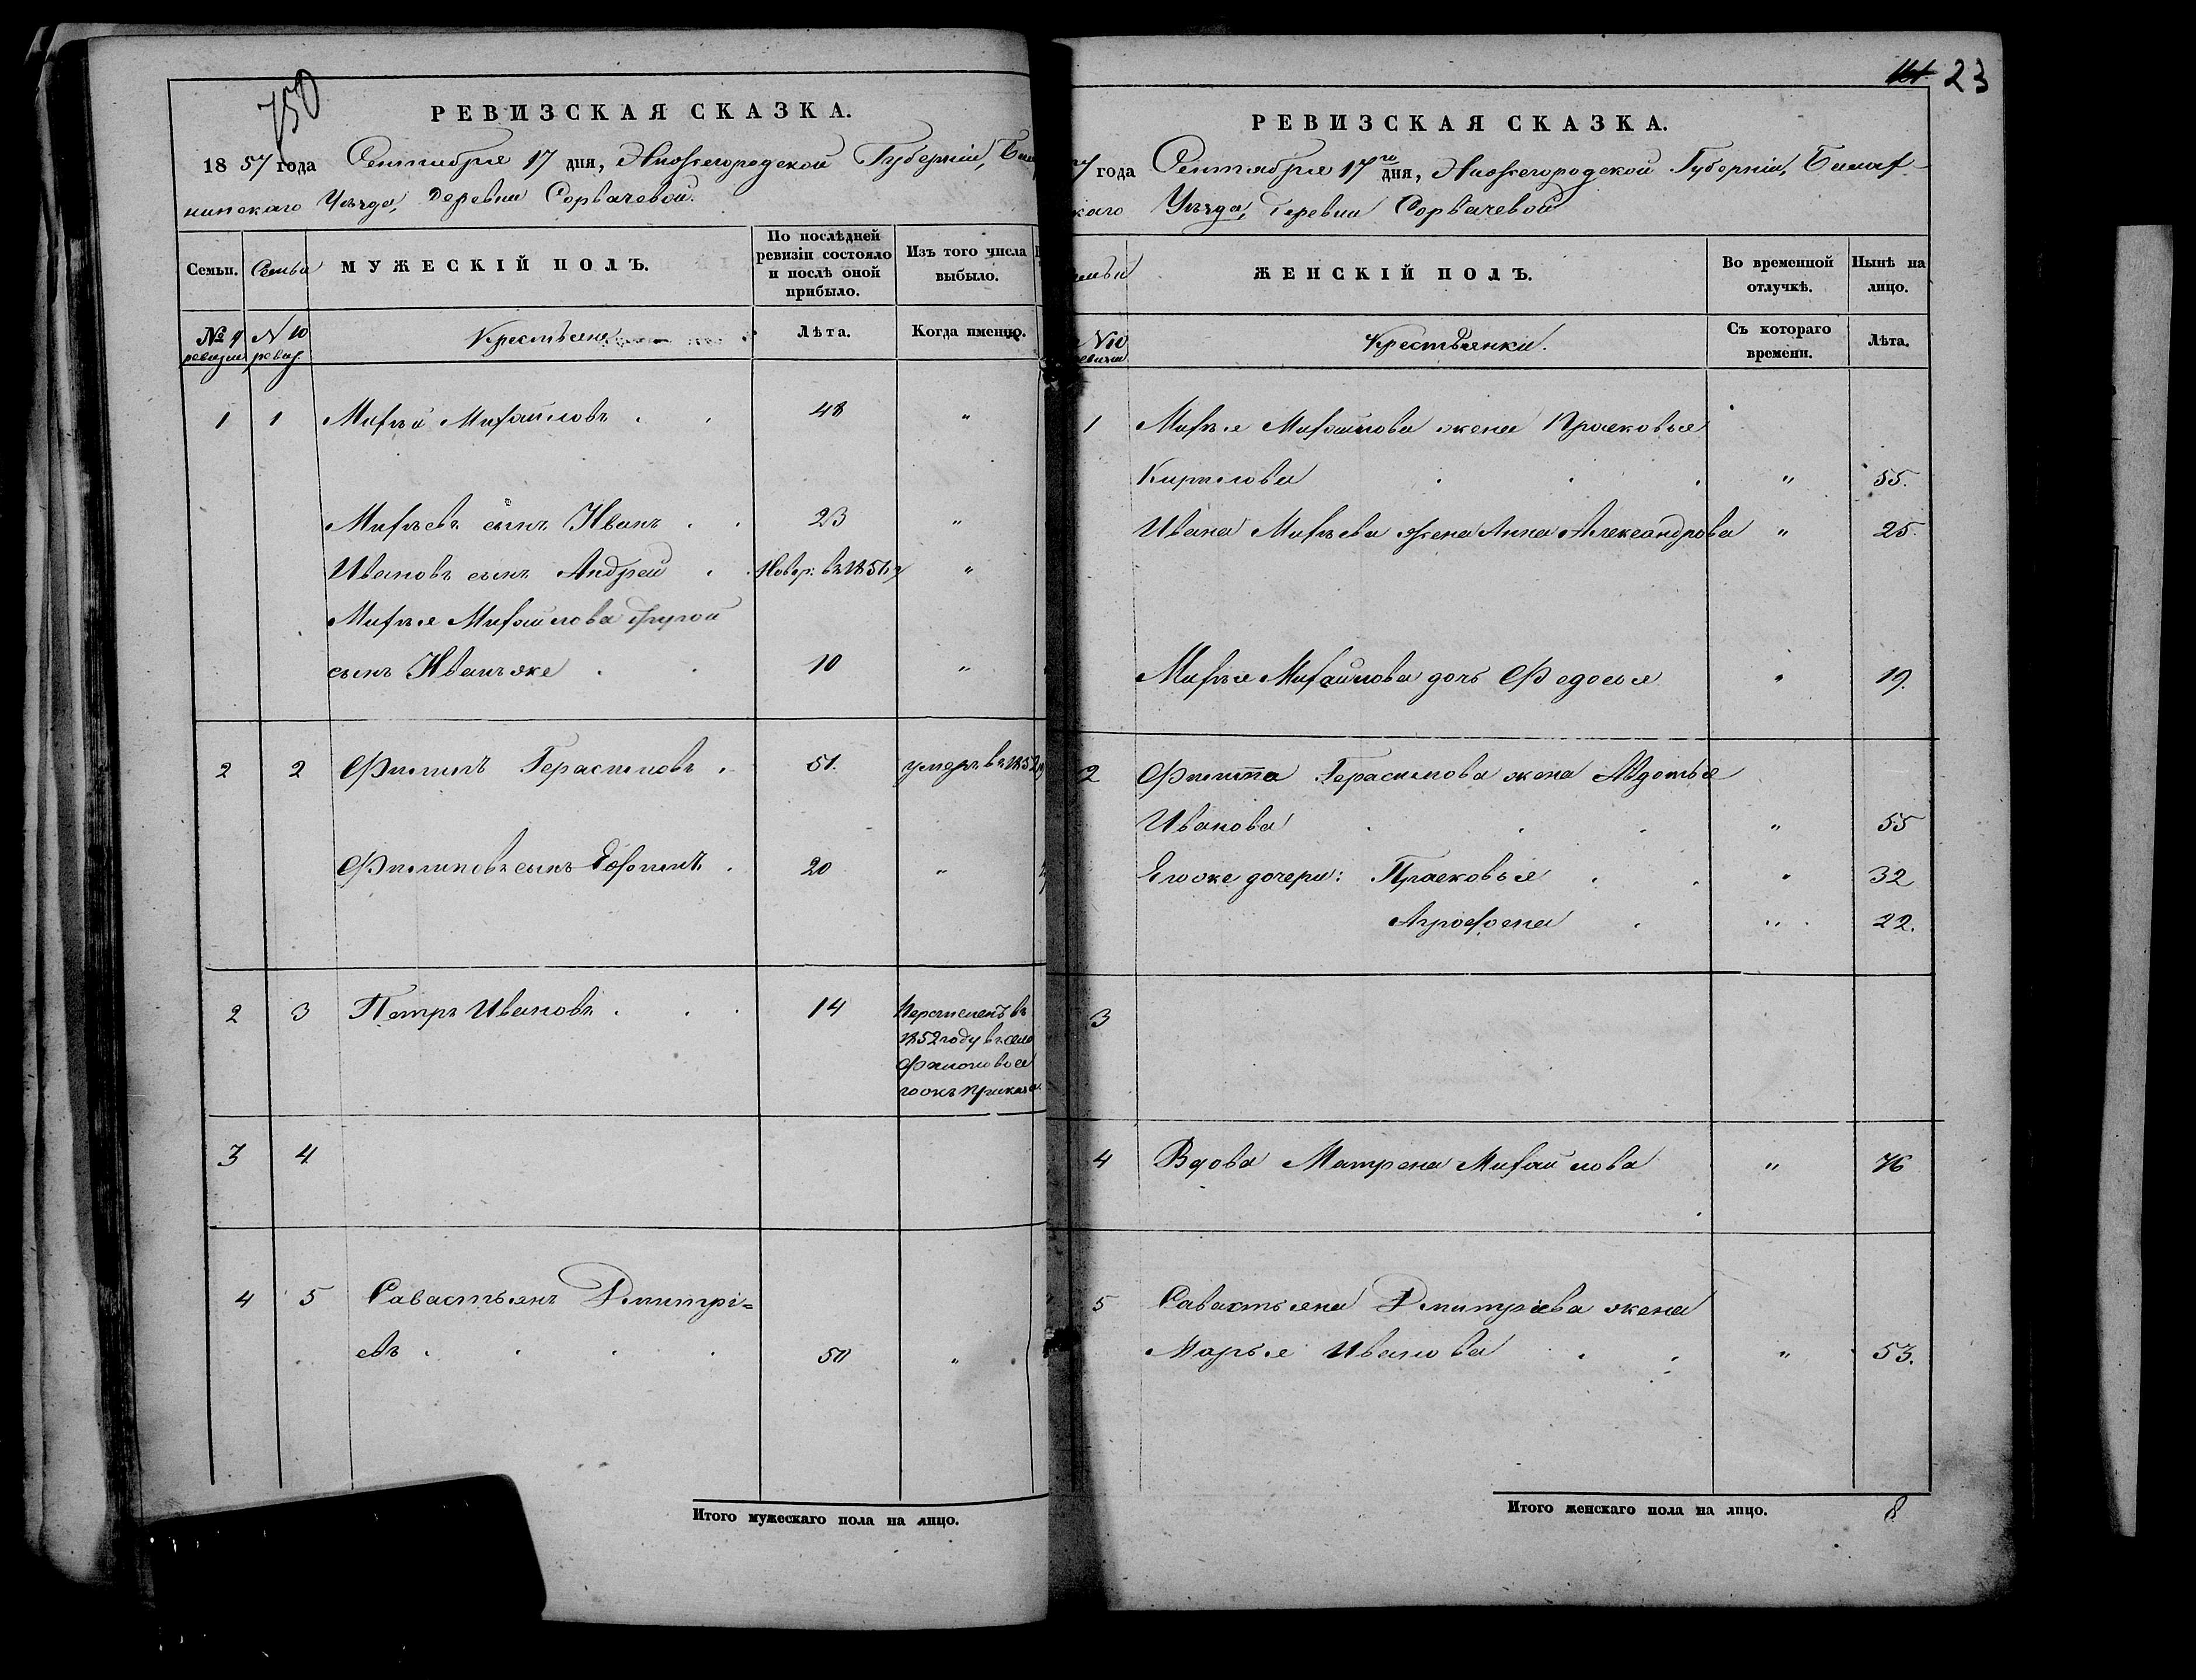 750
РЕВИЗСКАЯ СКАЗКА.
1857 года Сентября 17 дня, Нижегородской Губерніи, Бала
нинскаго Уѣзда, Деревни Сорвачевой.
Семьи. Семьи МУЖЕСКІЙ ПОЛЪ. По послѣдней ревизіи состояло и послѣ оной прибыло. Изъ того числа выбыло.
№ 9 ревизіи N 10 ревиз. Крестьяне Лѣта. Когда именно.
1 1 Михѣй Михайловъ . . 48 „
Михѣевъ сынъ Иванъ . . 23 „
Ивановъ сынъ Андрей . Новор: въ 1851 г „
Михѣя Михайлова другой
сынъ Иванъ же . . 10 „
2 2 Филипъ Герасимовъ . 51. умеръ въ 1852
Филиповъ сынъ Ефимъ . 20 „
2 3 Петръ Ивановъ . . . 14 Перечисленъ въ
1852 году въ село
3 4
4 5 Савастьянъ Дмитрі=
евъ . . . . 50 „
Итого мужескаго пола на лицо.
23
РЕВИЗСКАЯ СКАЗКА.
7 года Сентября 17го дня, Нижегородской Губерніи, Балах-
скаго Уѣзда, Деревни Сорвачевой
емьи ЖЕНСКІЙ ПОЛЪ. Во временной отлучкѣ. Нынѣ на лицо.
N 10 ревизіи Крестьянки. Съ котораго времени. Лѣта.
1 Михѣя Михайлова жена Прасковья
Кирилова . . . „ 55.
Ивана Михѣева жена Анна Александрова „ 25.
Михѣя Михайлова дочь Федосья „ 19.
2 Филиппа Герасимова жена Авдотья
Иванова . . . „ 55
Егоже дочери: Прасковья . . „ 32
Агрофена . „ 22.
3
4 Вдова Матрена Михайлова „ 76
5 Савастьяна Дмитріева жена
Марья Иванова . . „ 53.
Итого женскаго пола на лицо. 8